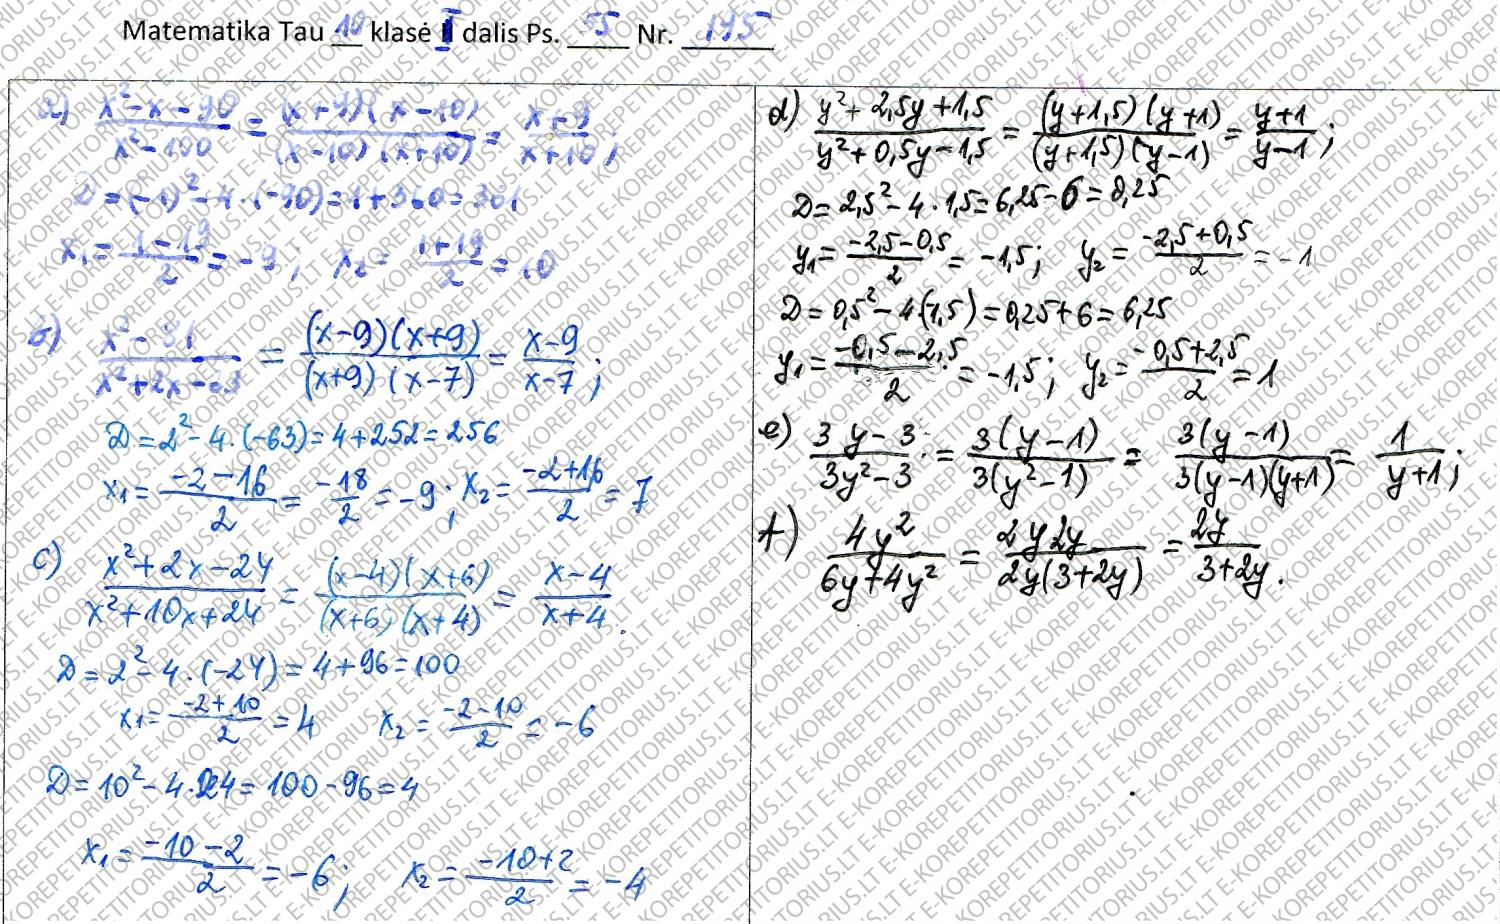 Matematika Tau 10 klasė II dalis Ps. 55 Nr. 195
a) (x²-x-90)/(x²-100) = ((x+9)(x-10))/((x-10)(x+10)) = (x+9)/(x+10);
D=(-1)²-4·(-90)=1+360=361
x₁=(1-19)/2=-9; x₂=(1+19)/2=10
b) (x²-81)/(x²+2x-63) = ((x-9)(x+9))/((x+9)(x-7)) = (x-9)/(x-7);
D=2²-4·(-63)=4+252=256
x₁=(-2-16)/2=-18/2=-9; x₂=(-2+16)/2=7
c) (x²+2x-24)/(x²+10x+24) = ((x-4)(x+6))/((x+6)(x+4)) = (x-4)/(x+4).
D=2²-4·(-24)=4+96=100
x₁=(-2+10)/2=4 x₂=(-2-10)/2=-6
D=10²-4·24=100-96=4
x₁=(-10-2)/2=-6; x₂=(-10+2)/2=-4
d) (y²+2,5y+1,5)/(y²+0,5y-1,5) = ((y+1,5)(y+1))/((y+1,5)(y-1)) = (y+1)/(y-1);
D=2,5²-4·1,5=6,25-6=0,25
y₁=(-2,5-0,5)/2=-1,5; y₂=(-2,5+0,5)/2=-1
D=0,5²-4·(-1,5)=0,25+6=6,25
y₁=(-0,5-2,5)/2=-1,5; y₂=(-0,5+2,5)/2=1
e) (3y-3)/(3y²-3) = (3(y-1))/(3(y²-1)) = (3(y-1))/(3(y-1)(y+1)) = 1/(y+1);
f) 4y²/(6y+4y²) = (2y2y)/(2y(3+2y)) = 2y/(3+2y).
E-KOREPETITORIUS.LT